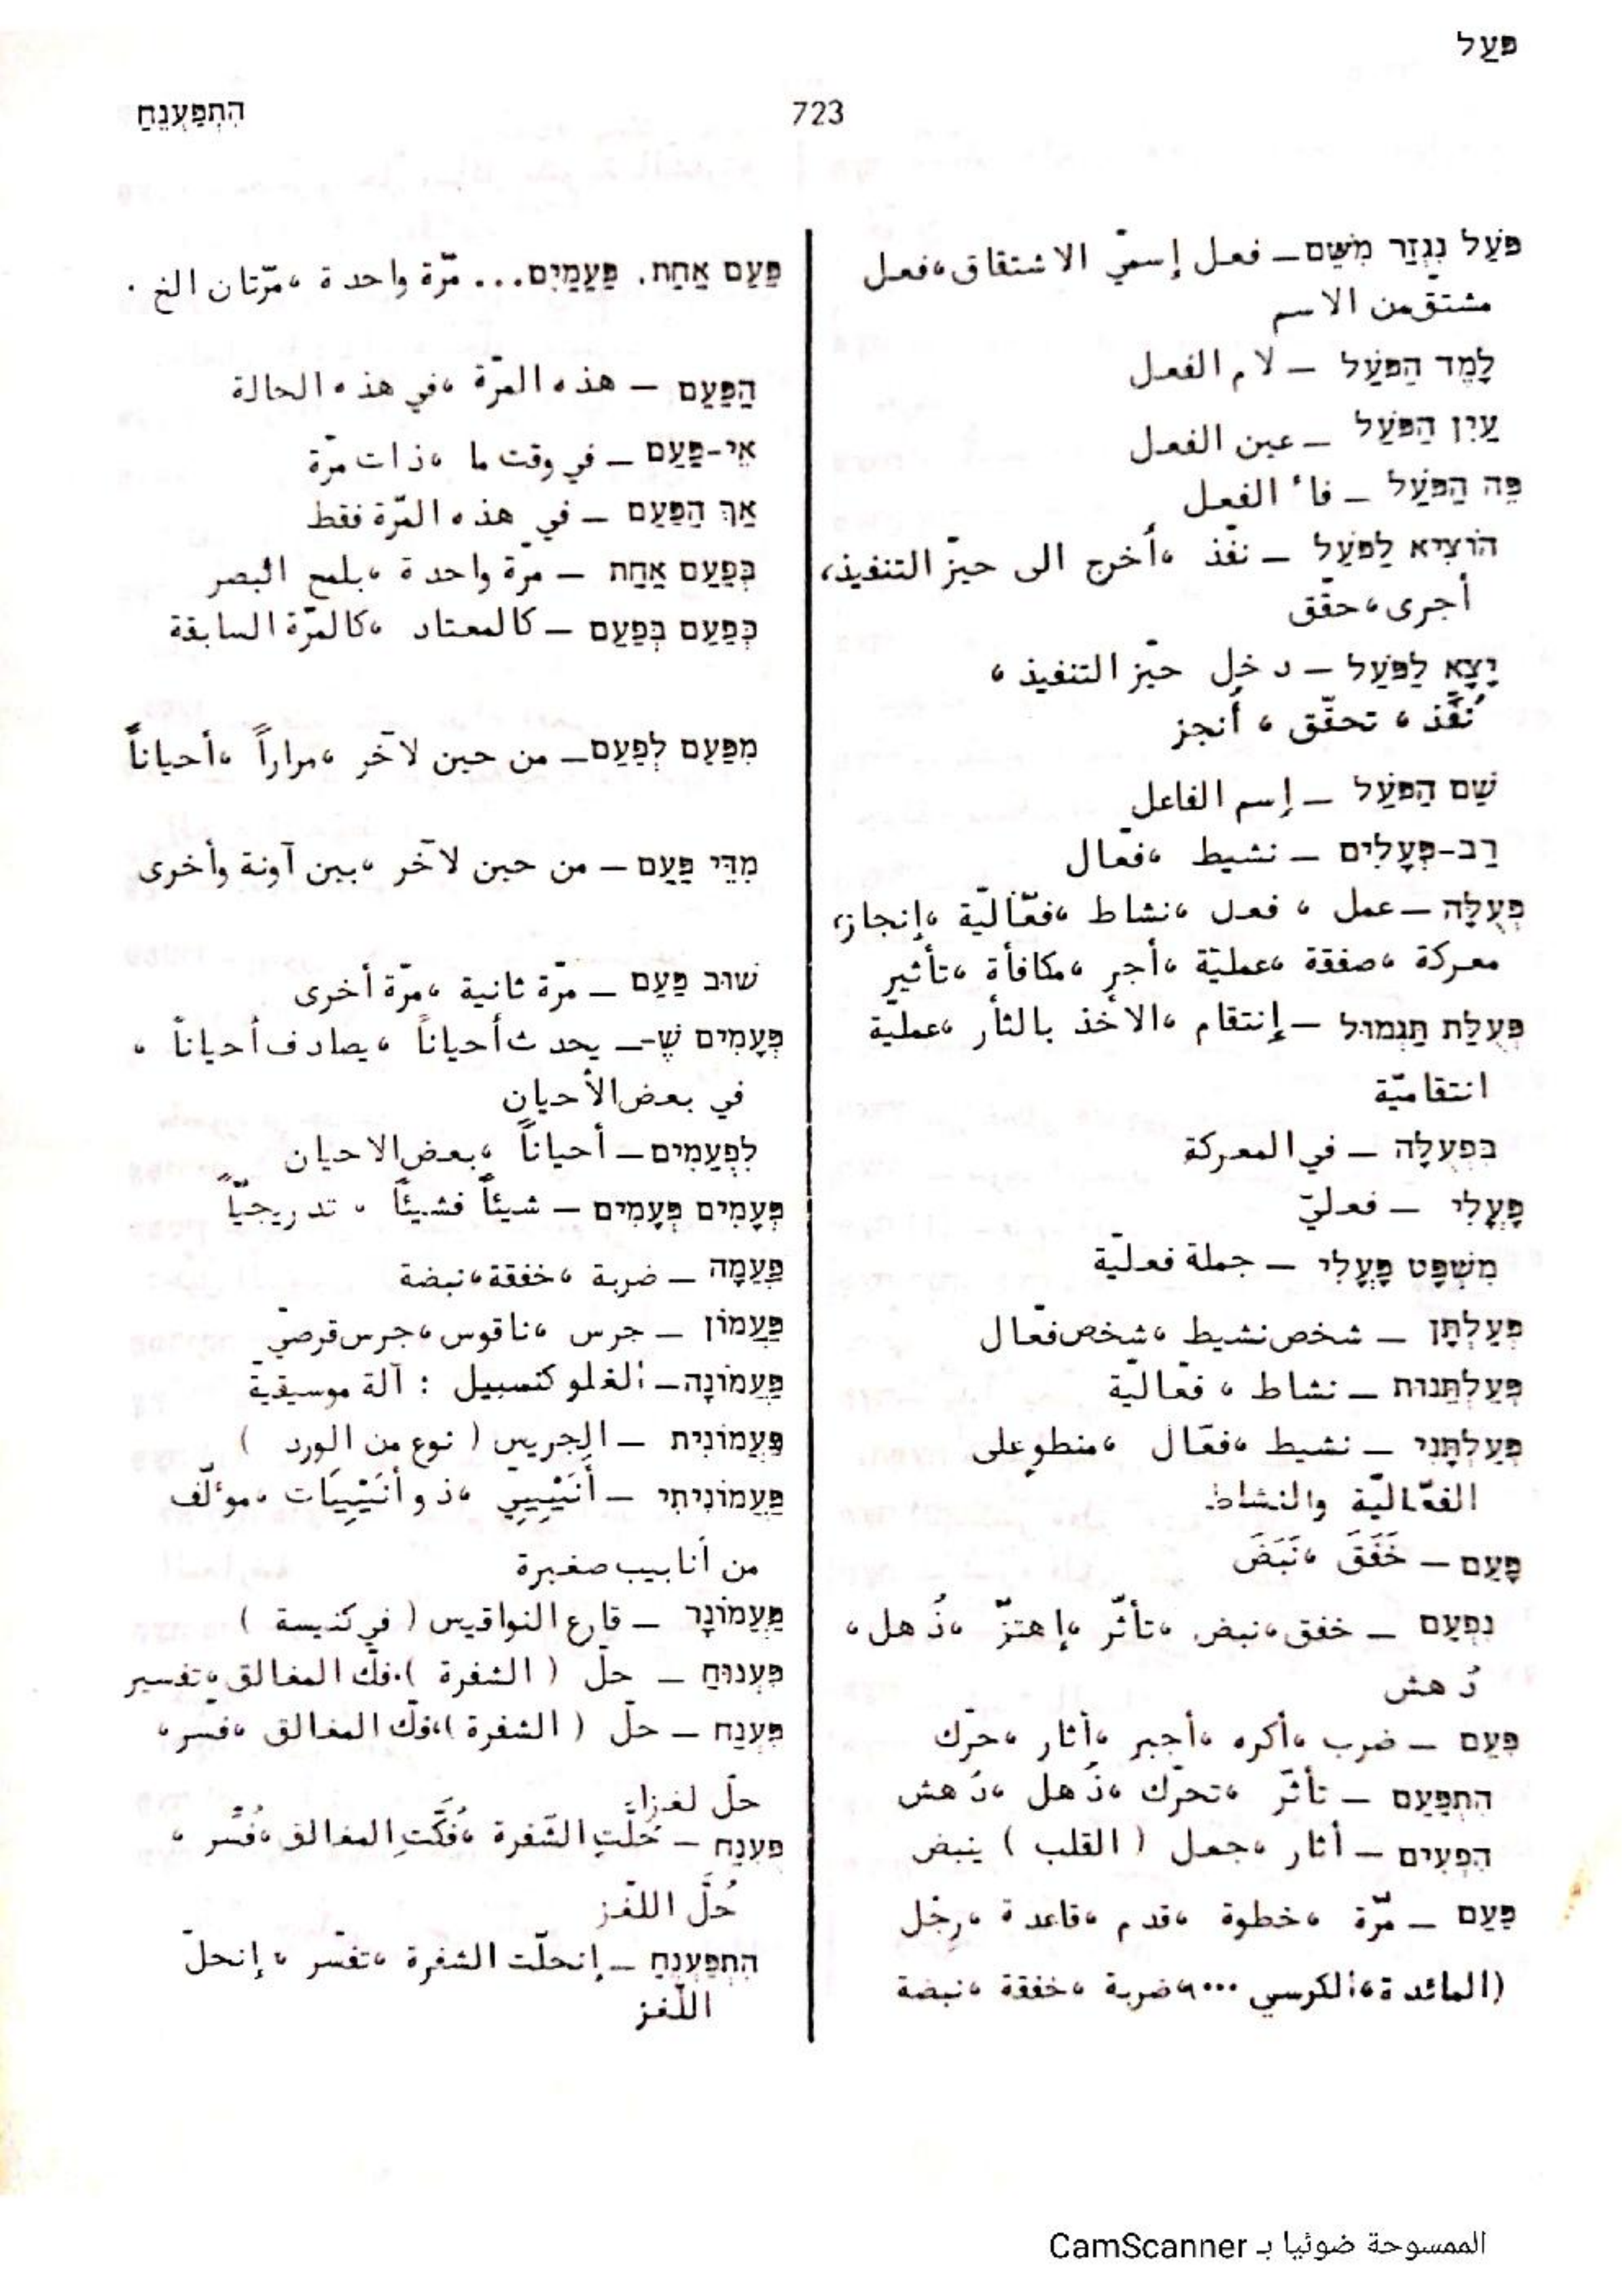 פֹּעַל
הִתְפַּעְנֵחַ
723
פֹּעַל נִגְזַר מִשֵּׁם – فعل إسميّ الاشتقاق، فعل
مشتقّ من الاسم
לָמֶד הַפֹּעַל – لام الفعل
עַיִן הַפֹּעַל – عين الفعل
פֵּה הַפֹּעַל – فاء الفعل
הוֹצִיא לַפֹּעַל – نفّذ ، أخرج الى حيّز التنفيذ،
أجرى، حقّق
יָצָא לַפֹּעַל – دخل حيّز التنفيذ ،
نُفِّذ ، تحقّق ، أُنجز
שֵׁם הַפֹּעַל – إسم الفاعل
רַב-פְּעָלִים – نشيط ، فعّال
פְּעֻלָּה – عمل ، فعل ، نشاط ، فعّاليّة ، إنجاز،
معركة ، صفقة ، عمليّة ، أجر ، مكافأة ، تأثير
פְּעֻלַּת תַּגְמוּל – إنتقام ، الأخذ بالثأر ، عمليّة
انتقاميّة
בִּפְעֻלָּה – في المعركة
פָּעֳלִי – فعليّ
מִשְׁפָּט פָּעֳלִי – جملة فعليّة
פְּעַלְתָּן – شخص نشيط ، شخص فعّال
פְּעַלְתָּנוּת – نشاط ، فعّاليّة
פְּעַלְתָּנִי – نشيط ، فعّال ، منطوٍ على
الفعّاليّة والنشاط
פָּעַם – خَفَقَ ، نَبَضَ
נִפְעַם – خفق، نبض ، تأثّر ، إهتزّ ، ذُهل ،
دُهش
פִּעֵם – ضرب ، أكره ، أجبر ، أثار ، حرّك
הִתְפַּעֵם – تأثّر ، تحرّك ، ذُهل ، دُهش
הִפְעִים – أثار ، جعل ( القلب ) ينبض
פַּעַם – مرّة ، خطوة ، قدم ، قاعدة ، رِجْل
(المائدة، الكرسي ...)، ضربة ، خفقة ، نبضة
פַּעַם אַחַת, פַּעֲמַיִם... مرّة واحدة ، مرّتان الخ .
הַפַּעַם – هذه المرّة ، في هذه الحالة
אֵי-פַּעַם – في وقت ما ، ذات مرّة
אַךְ הַפַּעַם – في هذه المرّة فقط
בְּפַעַם אַחַת – مرّة واحدة ، بلمح البصر
כְּפַעַם בְּפַעַם – كالمعتاد ، كالمرّة السابقة
מִפַּעַם לְפַעַם – من حين لآخر ، مراراً ، أحياناً
מִדֵּי פַּעַם – من حين لآخر ، بين آونة وأخرى
שׁוּב פַּעַם – مرّة ثانية ، مرّة أخرى
פְּעָמִים שֶׁ- – يحدث أحياناً ، يصادف أحياناً ،
في بعض الأحيان
לִפְעָמִים – أحياناً ، بعض الاحيان
פְּעָמִים פְּעָמִים – شيئاً فشيئاً ، تدريجيّاً
פַּעֲמָה – ضربة ، خفقة، نبضة
פַּעֲמוֹן – جرس ، ناقوس ، جرس قرصيّ
פַּעֲמוֹנָה – الغلوكنسبيل : آلة موسيقيّة
פַּעֲמוֹנִית – الجريس ( نوع من الورد )
פַּעֲמוֹנִיתִי – أُنَيْبِيبِي ، ذو أُنَيْبِيبَات ، مؤلّف
من أنابيب صغيرة
פַּעֲמוֹנָר – قارع النواقيس ( في كنيسة )
פִּעְנוּחַ – حلّ ( الشفرة )، فكّ المغالق ، تفسير
פִּעְנַח – حلّ ( الشفرة )، فكّ المغالق ، فسّر ،
حلّ لغزا،
פֻּעְנַח – حُلَّتِ الشّفرة ، فُكَّتِ المغالق ، فُسِّر ،
حُلَّ اللّغز
הִתְפַּעְנֵחַ – إنحلّت الشفرة ، تفسّر ، إنحلّ
اللّغز
الممسوحة ضوئيا بـ CamScanner